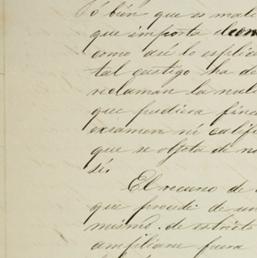 ó bien que se mali
que importa d con
como así lo esplic
tal castigo ha de
reclaman la nuli
que pudiera fin
examen ni calif
que se objeta de n
sí.
El recurso de
que procede de un
mismo, de estricto
ampliarse fuera